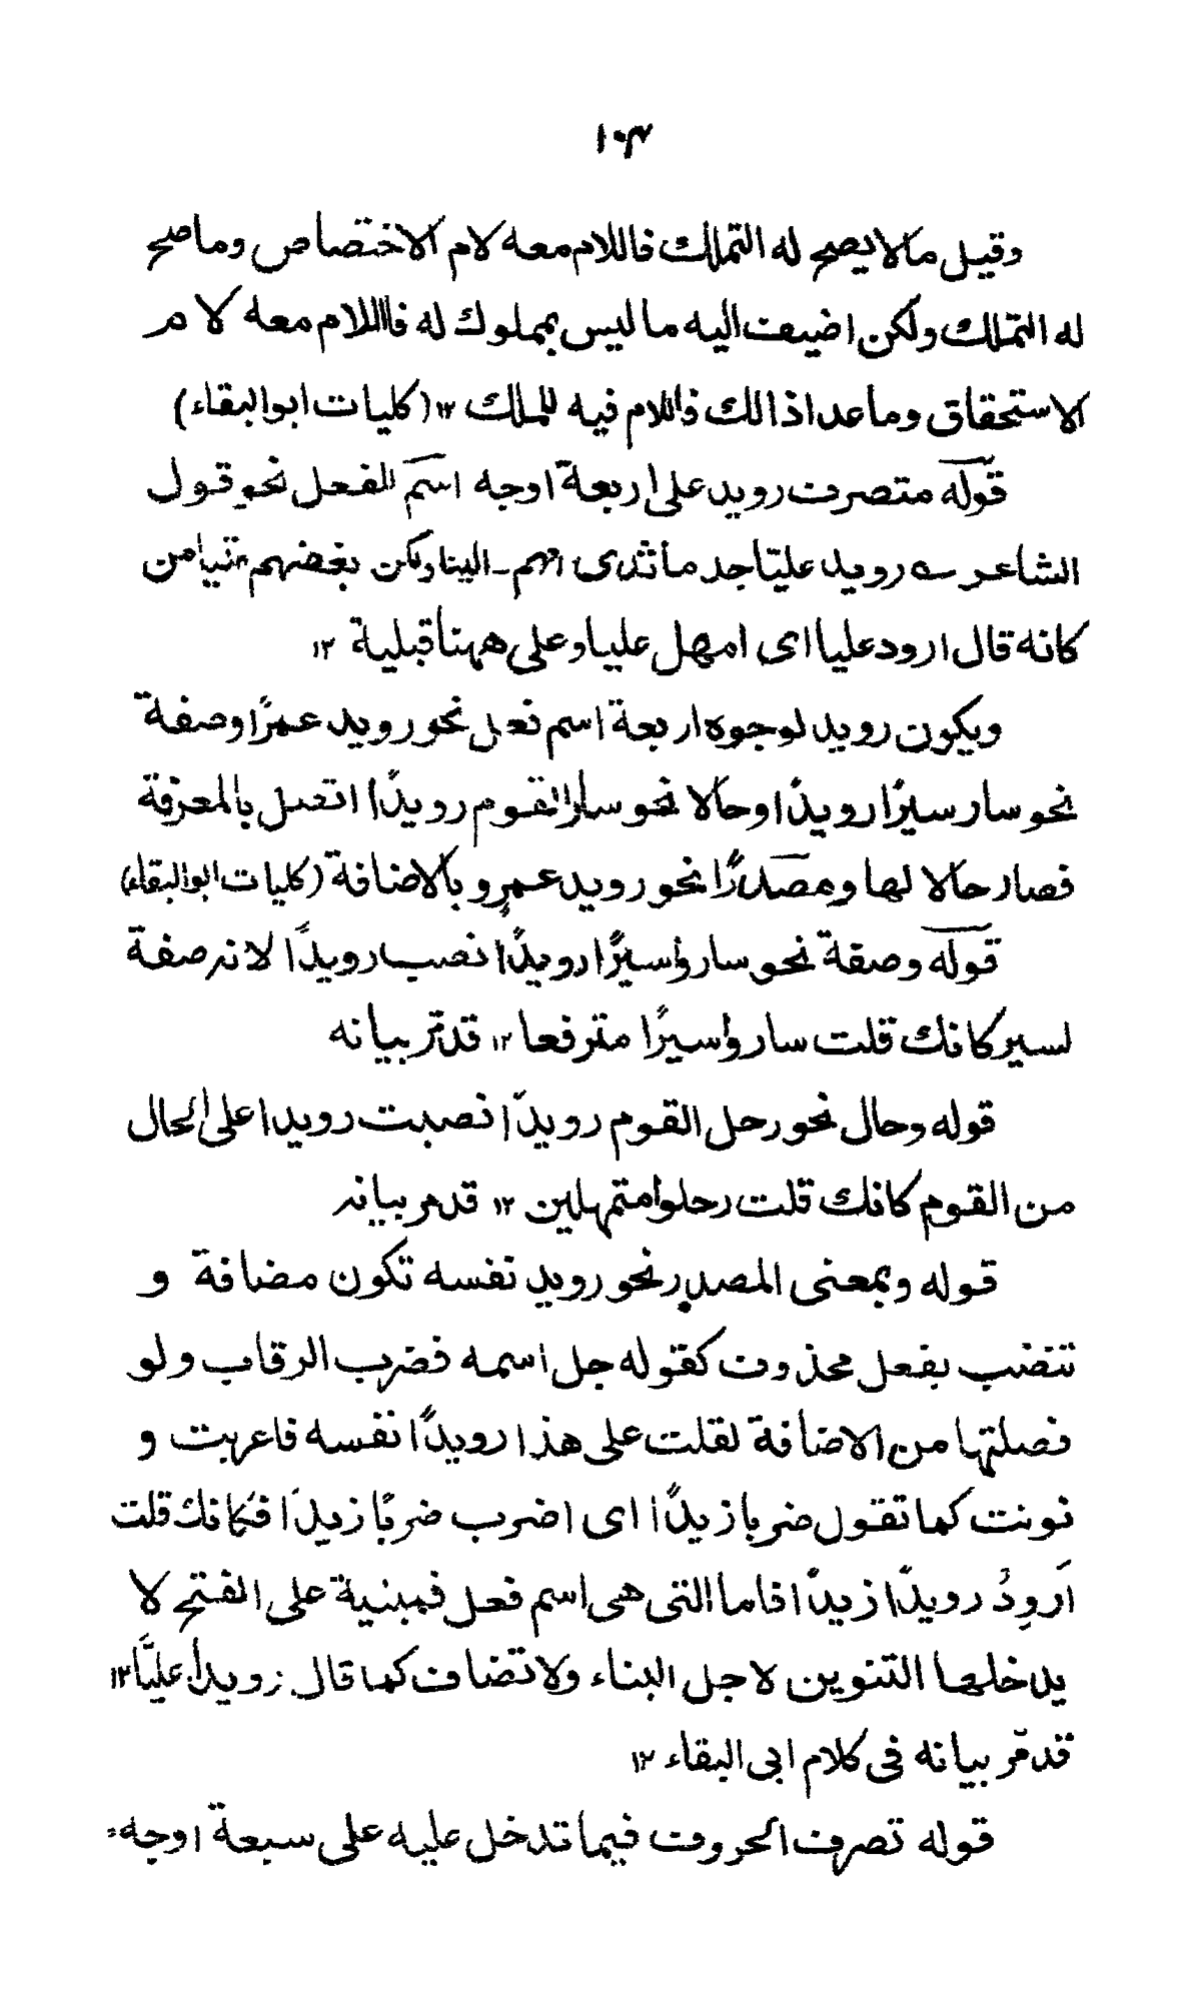 ١٠٣
وقيل مالا يصح له التملك فاللام معه لام الاختصاص وما صح
له التملك ولكن اضيف اليه ما ليس بمملوك له فااللام معه لام
الاستحقاق وما عدا ذالك فاللام فيه للملك ١٢ (كليات ابو البقاء)
قوله متصرف رويد على اربعة اوجه اسم للفعل نحو قول
الشاعر ؎ رويد عليّا جد ما ثدى امهم ـ الينا ولكن بغضهم متيامن
كانه قال ارود عليا اى امهل عليا وعلى ههنا قبلية ١٢
ويكون رويد لوجوه اربعة اسم فعل نحو رويد عمرًا وصفة
نحو سار سيرًا رويدًا وحالا نحو سار القوم رويدًا اتصل بالمعرفة
فصار حالا لها ومصدرًا نحو رويد عمرو بالاضافة (كليات ابو البقاء)
قوله وصفة نحو ساروا سيرًا رويدًا نصب رويدًا لانه صفة
لسير كانك قلت ساروا سيرًا مترفعا ١٢ قد مر بيانه
قوله وحال نحو رحل القوم رويدًا نصبت رويدا على الحال
من القوم كانك قلت رحلوا متمهلين ١٢ قد مر بيانه
قوله وبمعنى المصدر نحو رويد نفسه تكون مضافة و
تنضب بفعل محذوف كقوله جل اسمه فضرب الرقاب ولو
فصلتها من الاضافة لقلت على هذا رويدًا نفسه فاعربت و
نونت كما تقول ضربا زيدًا اى اضرب ضربًا زيدًا فكانك قلت
اَرودُ رويدًا زيدًا فاما التى هى اسم فعل فمبنية على الفتح لا
يدخلها التنوين لاجل البناء ولا تضاف كما قال رويدا عليًّا ١٢
قد مر بيانه فى كلام ابى البقاء ١٢
قوله تصرف الحروف فيما تدخل عليه على سبعة اوجه